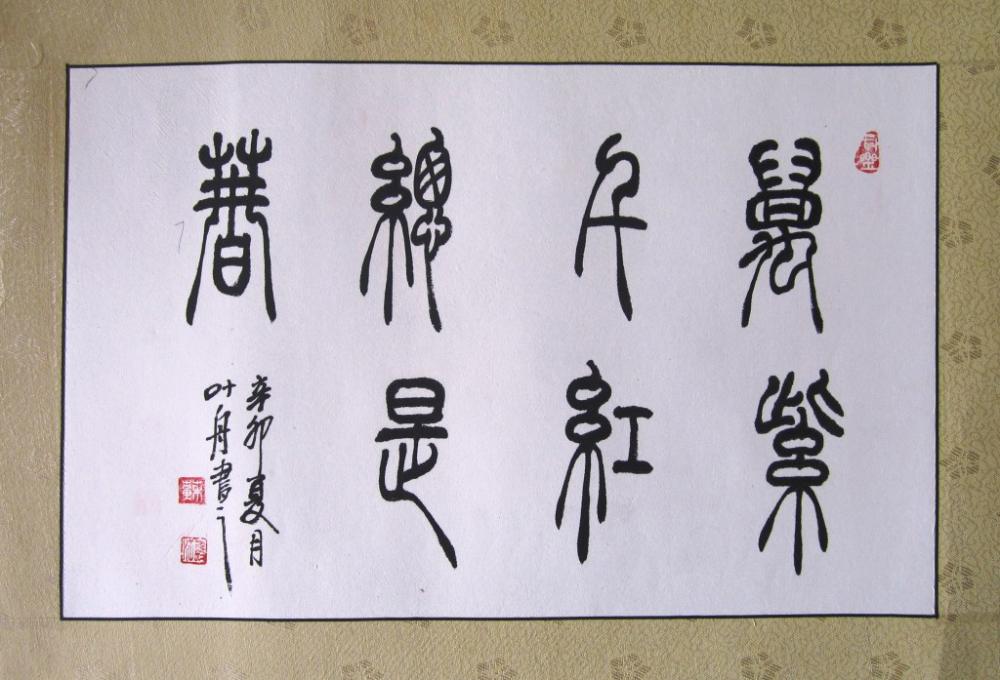 萬紫
千紅
總是
春
辛卯夏月
叶舟書之